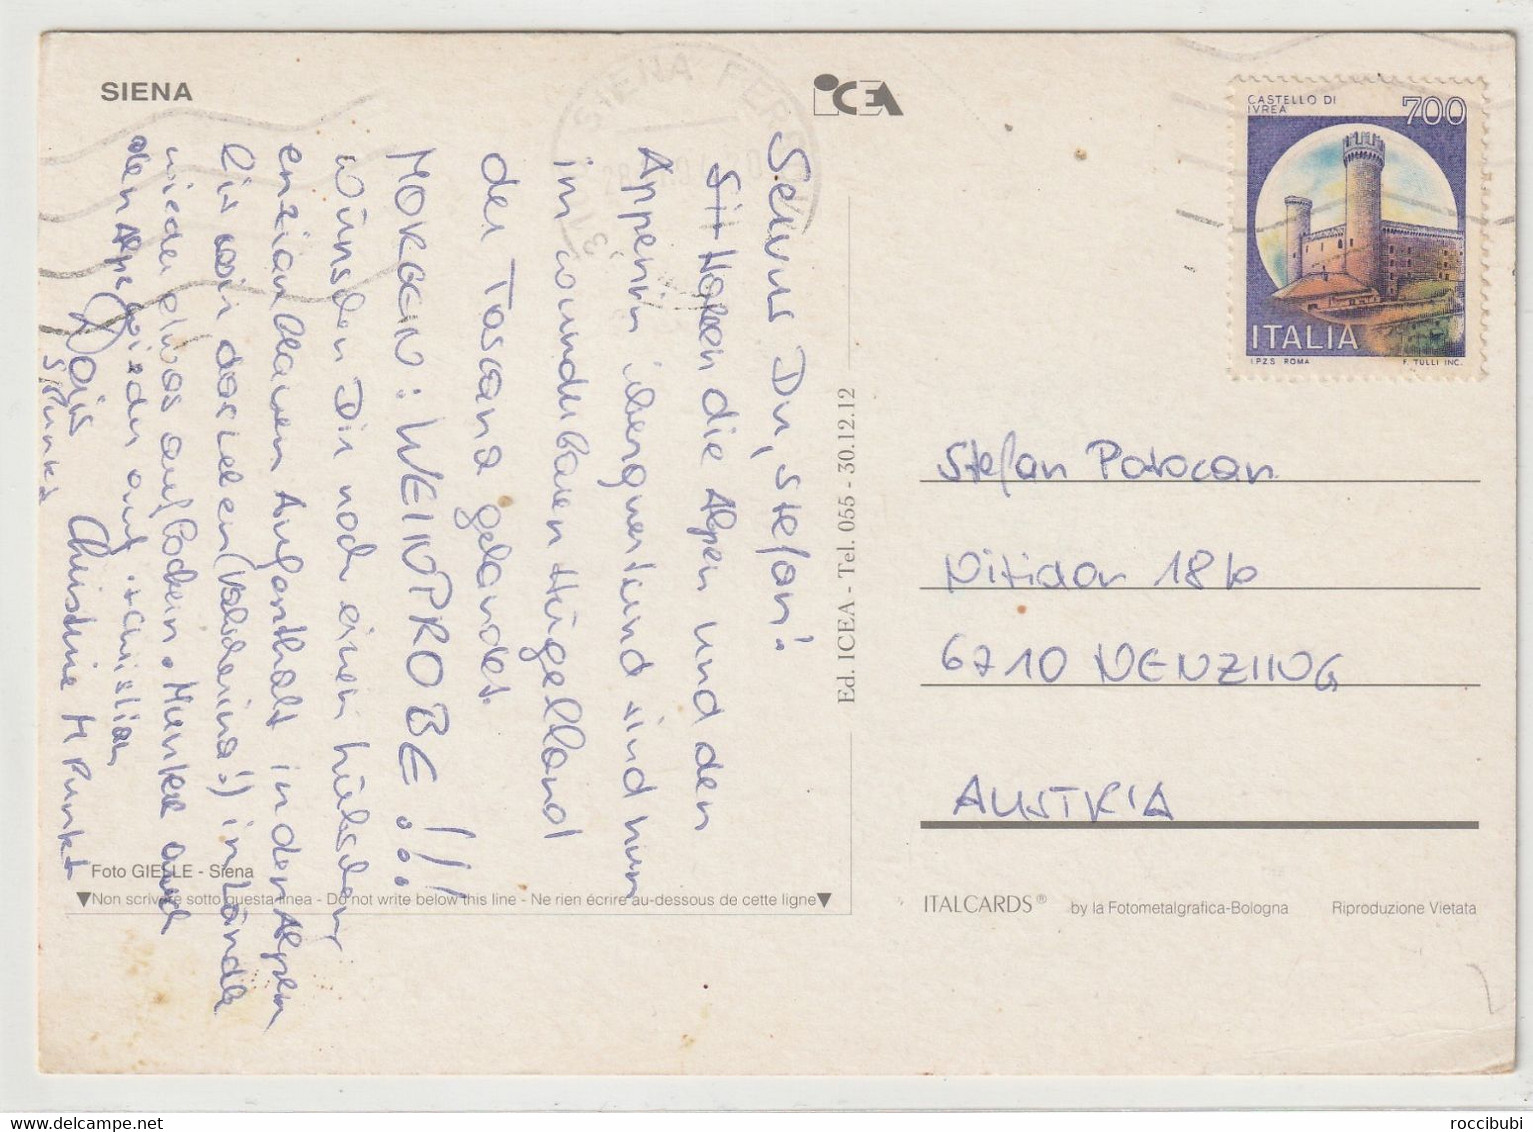 SIENA
iCEA
SIENA FERROVIA
CASTELLO DI
IVREA
700
ITALIA
I.P.Z.S. ROMA
F. TULLI INC.
Servus Du, Stefan!
Haben die Alpen und den
Appenin überquert und sind nun
im wunderbaren Hügelland
der Toscana gelandet.
MORGEN: WEINPROBE!!!...
Wünschen Dir noch einen hübschen
enzianblauen Aufenthalt in den Alpen
wieder etwas
den Alpe wieder auf. Christian
Christine M Punkt
S Punkt
Ed. ICEA - Tel. 055 - 30.12.12
Stefan Potocan
Nitidar 18b
6710 NENZING
AUSTRIA
Foto GIELLE - Siena
▼Non scrivere sotto questa linea - Do not write below this line - Ne rien écrire au-dessous de cette ligne▼
ITALCARDS® by la Fotometalgrafica-Bologna Riproduzione Vietata
www.delcampe.net
roccibubi